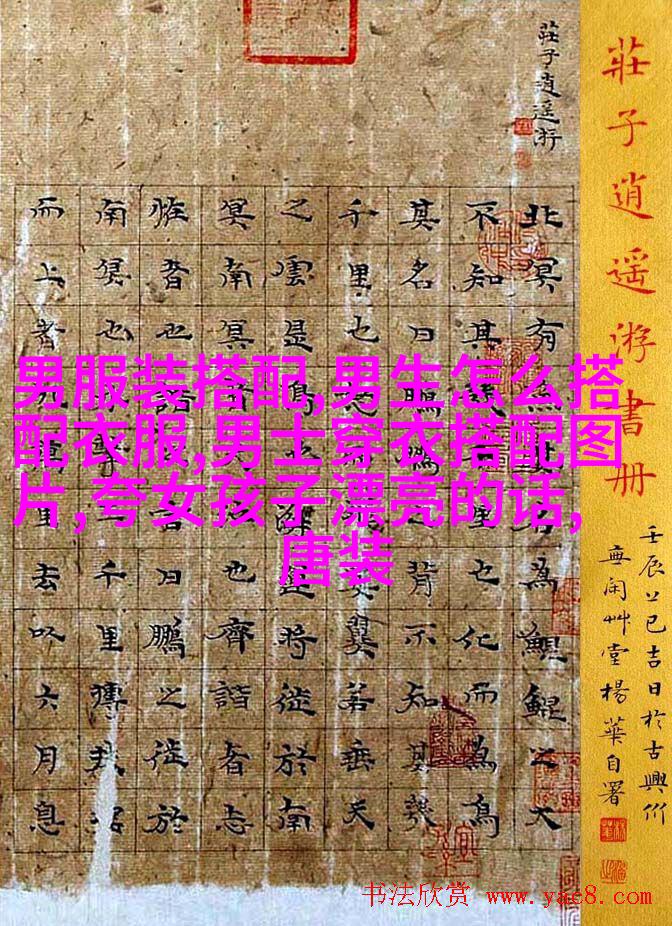 莊子逍遥游書册
壬辰
吉日於古興
無闲艸堂楊華自署
莊子逍遥游
北冥有魚其名為鯤鯤之大
不知其幾千里也化而為鳥
其名曰鵬鵬之背不知其幾
千里也怒而飛其翼若垂天
之雲是鳥也海運將徙於南
冥南冥者天池也齊諧者志
恠者也諧之言曰鵬之徙於
南冥也水擊三千里摶扶搖
而上者九萬里去以六月息
男服装搭配,男生怎么搭
配衣服,男士穿衣搭配图
片,夸女孩子漂亮的话,
唐装
书法欣赏 www.yac8.com